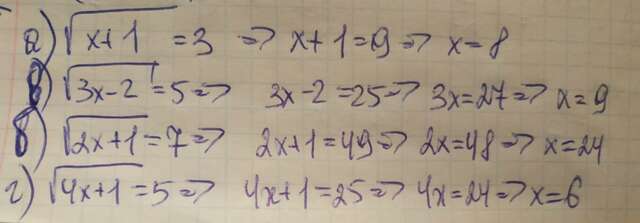 а) √x+1 = 3 => x+1=9=> x=8
в) √3x-2 = 5=> 3x-2=25=> 3x=27=> x=9
б) √2x+1 = 7=> 2x+1=49=> 2x=48=> x=24
г) √4x+1 = 5=> 4x+1=25=> 4x=24=> x=6